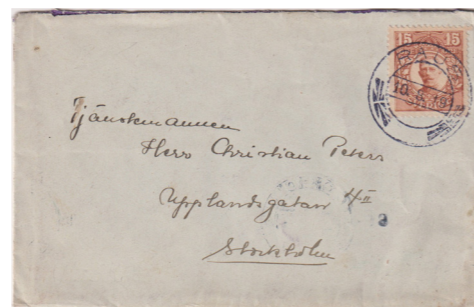 15 15
Tjänstemannen
Herr Christian Peters
Upplandsgatan 4 II
Stockholm